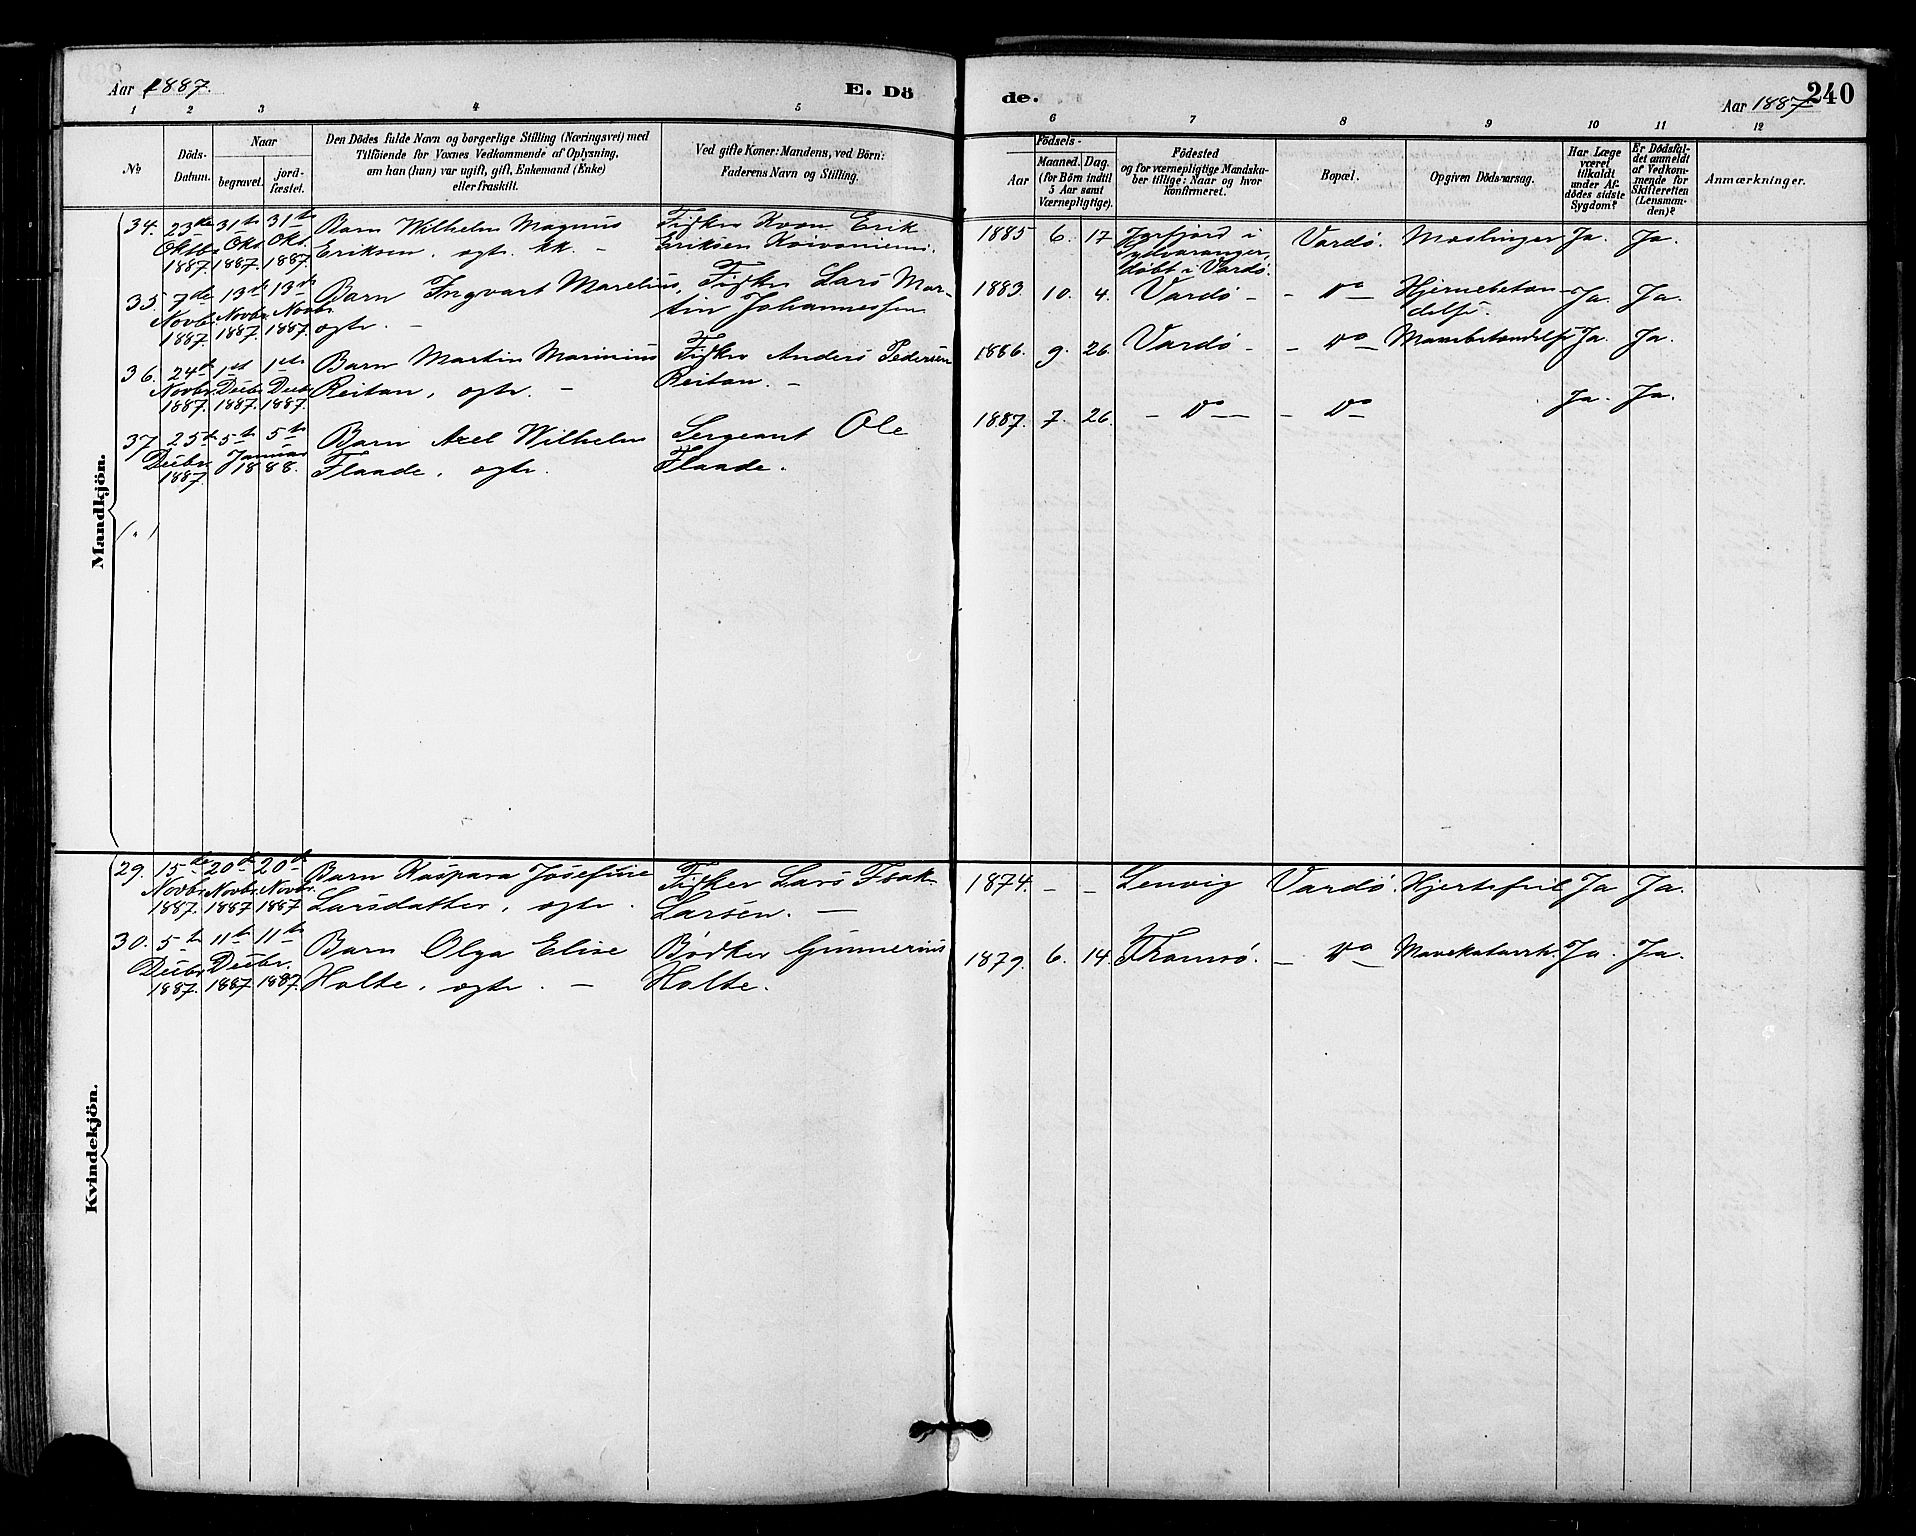 Aar 1887.
E. Dö
de.
Aar 1887
240
1 2 3 4 5
6 7 8 9 10 11 12
No
Döds-
Datum.
Naar
begravet.
jord-
fæstet.
Den Dödes fulde Navn og borgerlige Stilling (Næringsvei) med
Tilföiende for Voxnes Vedkommende af Oplysning,
om han (hun) var ugift, gift, Enkemand (Enke)
eller fraskilt.
Ved gifte Koner: Mandens, ved Börn:
Faderens Navn og Stilling.
Födsels-
Aar
Maaned. Dag.
(for Börn indtil
5 Aar samt
Værnepligtige).
Födested
og for værnepligtige Mandska-
ber tillige: Naar og hvor
konfirmeret.
Bopæl.
Opgiven Dödsaarsag.
Har Læge
været
tilkaldt
under Af-
dödes sidste
Sygdom?
Er Dödsfal-
det anmeldt
af Vedkom-
mende for
Skifteretten
(Lensman-
den)?
Anmærkninger.
Mandkjön.
34. 23de Oktbr. 1887. 31te Okt. 1887. 31te Okt. 1887.
Barn Wilhelm Magnus
Eriksen, ogtr. kk. –
Fisker Kvæn Erik
Eriksen Koivoniemi.
1885 6. 17 Jarfjord i
Sydvaranger,
döbt i Vardö.
Vardö. Meslinger Ja. Ja.
35. 7de Novbr. 1887. 13de Novbr. 1887. 13de Novbr. 1887.
Barn Ingvart Marelius,
ogtr. –
Fisker Lars Mar-
tin Johannessen
1883. 10. 4. Vardö – – Do – Hjernebetæn-
delse. Ja. Ja.
36. 24de Novbr. 1887. 1ste Decbr. 1887. 1ste Decbr. 1887.
Barn Martin Marinius
Reitan, ogtr. –
Fisker Anders Pedersen
Reitan. –
1886. 9. 26. Vardö – – Do – Mavebetændelse Ja. Ja.
37 25de Decbr. 1887. 5te 5te Januar 1888.
Barn Axel Wilhelm
Flaade, ogtr.
Sergeant Ole
Flaade.
1887. 7. 26. – Do – – Do Ja. Ja.
Kvindekjön.
29. 15de Novbr. 1887. 20de Novbr. 1887 20de Novbr. 1887
Barn Kaspara Josefine
Larsdatter, ogtr.
Fisker Lars Isak
Larsen. –
1874. – – Lenvig Vardö. Hjertefeil Ja Ja.
30. 5te Decbr. 1887. 11te Decbr. 1887 11te 1887.
Barn Olga Elise
Holte, ogtr. –
Bödker Gunnerius
Holte.
1879. 6. 14. Tromsö. – Do – Mavekatarrh. Ja. Ja.